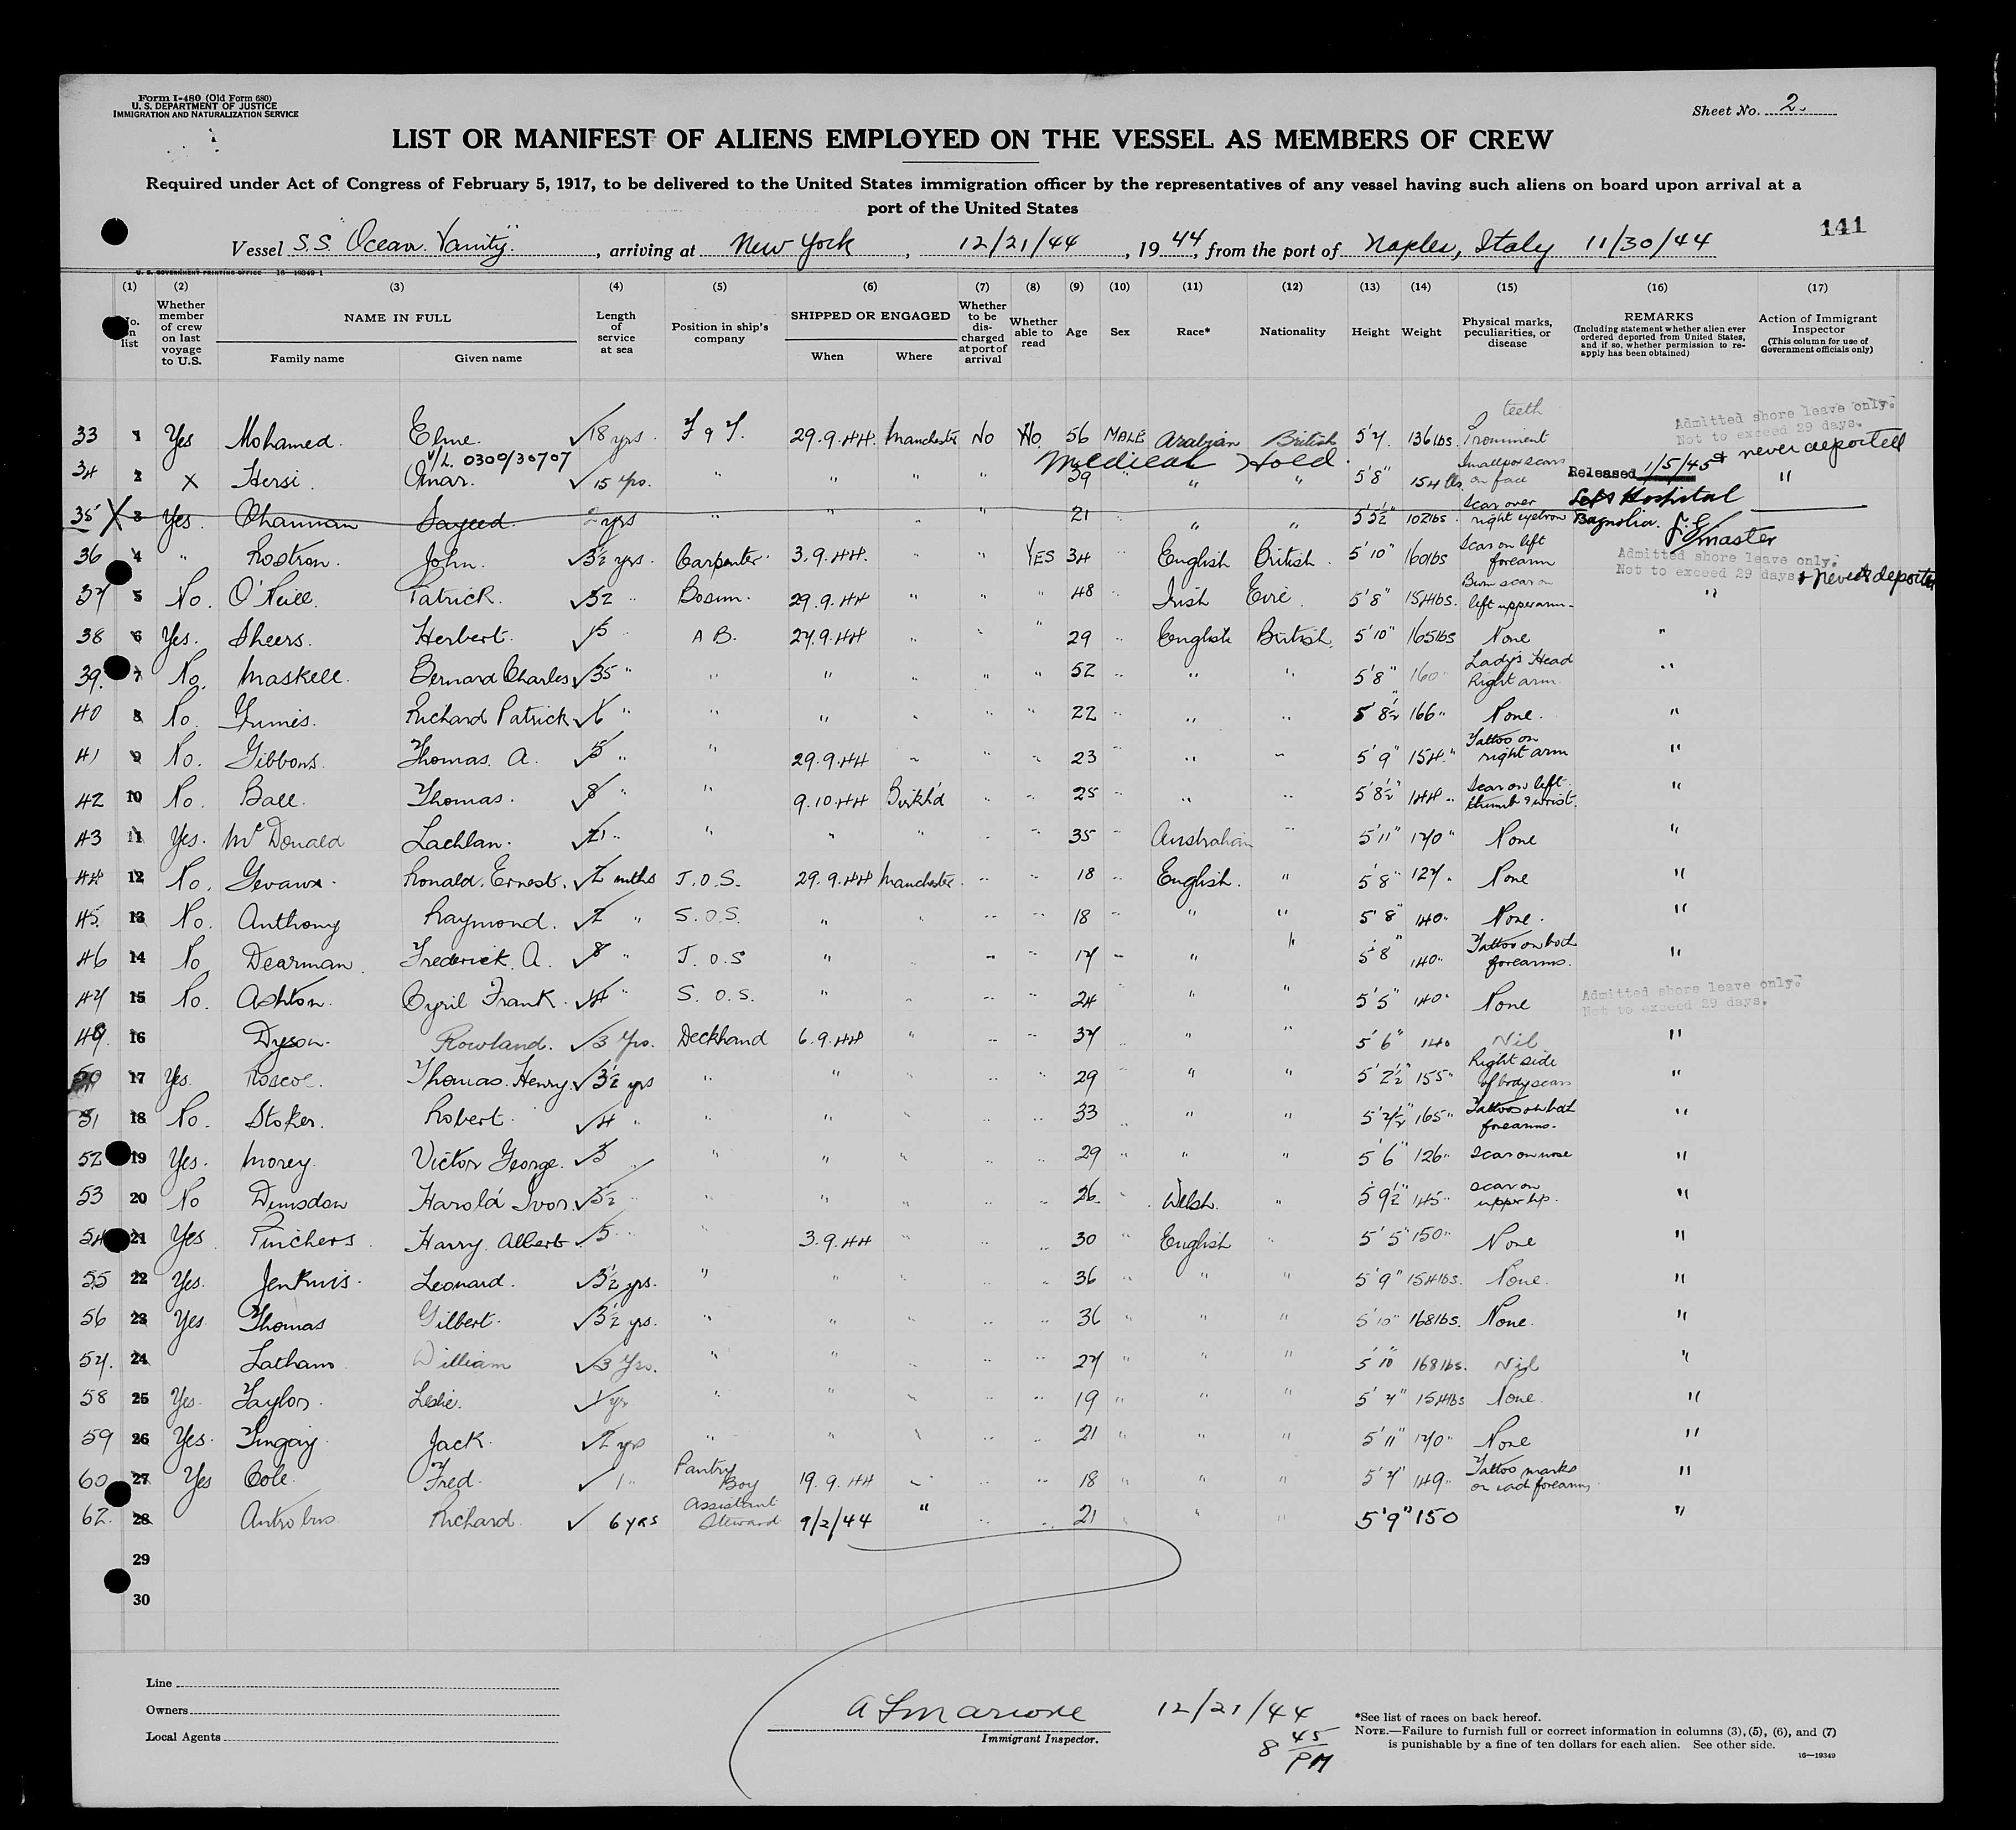 Form I-480 (Old Form 680)
U. S. DEPARTMENT OF JUSTICE
IMMIGRATION AND NATURALIZATION SERVICE
Sheet No. 2.
LIST OR MANIFEST OF ALIENS EMPLOYED ON THE VESSEL AS MEMBERS OF CREW
Required under Act of Congress of February 5, 1917, to be delivered to the United States immigration officer by the representatives of any vessel having such aliens on board upon arrival at a
port of the United States
141
Vessel S.S. "Ocean Vanity", arriving at New York, 12/21/44, 1944, from the port of Naples, Italy 11/30/44
U. S. GOVERNMENT PRINTING OFFICE 16-19349-1
(1) (2) (3) (4) (5) (6) (7) (8) (9) (10) (11) (12) (13) (14) (15) (16) (17)
No. on list
Whether member of crew on last voyage to U.S.
NAME IN FULL
Family name
Given name
Length of service at sea
Position in ship's company
SHIPPED OR ENGAGED
When
Where
Whether to be discharged at port of arrival
Whether able to read
Age
Sex
Race*
Nationality
Height
Weight
Physical marks, peculiarities, or disease
REMARKS
(Including statement whether alien ever ordered deported from United States, and if so, whether permission to reapply has been obtained)
Action of Immigrant Inspector
(This column for use of Government officials only)
33 1 Yes Mohamed. Elme. 18 yrs. F & T. 29.9.44. Manchester No No 56 MALE Arabian British 5'7. 136 lbs. 2 Prominent teeth Admitted shore leave only. Not to exceed 29 days. & never deported
V/L. 0300/30707 Medical Hold.
34 2 X Hersi. Omar. 15 yrs. " " " " 29 " " " 5'8" 154 lbs. Smallpox scars on face Released 1/5/45 "
35 X 3 Yes. Sayeed. 2 yrs " " " " 21 " " 5'5½" 102 lbs. Scar over right eyebrow Left Hospital Bagnolia. Master
36 4 " Rostron. John. 3½ yrs. Carpenter 3.9.44. " " YES 34 " English British. 5'10" 160 lbs Scar on left forearm Admitted shore leave only. Not to exceed 29 days. & never deported
37 5 No. O'Neill. Patrick. 32 " Bosun. 29.9.44 " " " 48 " Irish Eire. 5'8" 154 lbs. Burn scar on left upper arm. "
38 6 Yes. Sheers. Herbert. 15 " A B. 27.9.44 " " " 29 " English British. 5'10" 165 lbs None "
39. 7 No. Maskell. Bernard Charles 35 " " " " " " 52 " " " 5'8" 160 " Lady's Head Right arm. "
40 8 No. Grimes. Richard Patrick 6 " " " " " " 22 " " " 5'8½" 166 " None. "
41 9 No. Gibbons. Thomas. A. 5 " " 29.9.44 " " " 23 " " 5'9" 154. " Tattoo on right arm "
42 10 No. Ball. Thomas. 8 " " 9.10.44 Birkh'd " " 25 " " 5'8½" 144 " Scar on left thumb & wrist. "
43 11 Yes. McDonald Lachlan. 21 " " " " " " 35 " Australian " 5'11" 170 " None "
44 12 No. Ronald. Ernest. 2 mths J.O.S. 29.9.44 Manchester. " " 18 " English. " 5'8" 127. " None "
45. 13 No. Anthony Raymond. 2 " S.O.S. " " " " 18 " " " 5'8" 140 " None. "
46 14 No Dearman. Frederick. A. 8 " J.O.S " " " " 17 " " " 5'8" 140 " Tattoo on both forearms. "
47 15 No. Ashton. Cyril Frank. 4 " S. O. S. " " " " 24 " " 5'5" 140 " None Admitted shore leave only. Not to exceed 29 days.
49. 16 Dyson. Rowland. 3 Yrs. Deckhand 6.9.44 " " " 37 " " " 5'6" 140 Nil "
50 17 Yes. Roscoe. Thomas. Henry. 3½ yrs " " " " " 29 " " 5'2½" 155 " Right side of body scars "
51 18 No. Stoker. Robert. 4 " " " " " " 33 " " " 5'7½" 165 " Tattoos on both forearms. "
52 19 Yes. Morey. Victor George. 3 " " " " " " 29 " " " 5'6" 126 " Scar on nose "
53 20 No Harold Ivor. 3½ " " " " " " 26. " Welsh. " 5'9½" 145 " scar on upper lip. "
54 21 Yes Pinchers. Harry. Albert. 5 " " 3.9.44 " " " 30 " English " 5'5" 150 " None "
55 22 Yes. Jenkins. Leonard. 3½ yrs. " " " 36 " " " 5'9" 154 lbs. None. "
56 23 Yes. Thomas Gilbert. 3½ yrs. " " " " " 36 " " " 5'10" 168 lbs. None. "
57. 24 Latham William 3 Yrs. " " " " " 27 " " " 5'10" 168 lbs. Nil "
58 25 Yes. Taylor. Leslie. 1 yr " " " " " 19 " " " 5'7" 154 lbs None. "
59 26 Yes. Tingay. Jack. 2 yrs " " " " " 21 " " " 5'11" 170 " None "
60 27 Yes Cole. Fred. 1 " Pantry Boy 19.9.44 " " " 18 " " " 5'7" 149 " Tattoo marks on each forearm. "
62. 28 Antrobus Richard. 6 yrs Assistant Steward 9/2/44 " " " 21 " " " 5'9" 150 "
29
30
Line
Owners
Local Agents
Immigrant Inspector.
12/21/44
8 45 PM
*See list of races on back hereof.
NOTE.—Failure to furnish full or correct information in columns (3), (5), (6), and (7)
is punishable by a fine of ten dollars for each alien. See other side.
16-19349